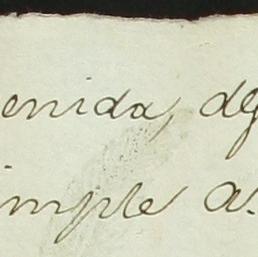 enida, de
imple a.